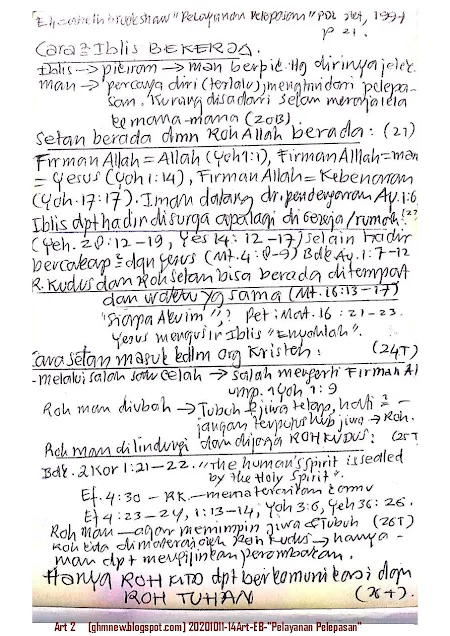 Elizabeth Brodkeshaw "Pelayanan Pelepasan" PDL 1997
p 21.
Cara2 Iblis BEKERJA.
Iblis → pikiran → man berpik. ttg dirinya jelek.
man → percaya diri (terlalu), menghindari pelepa-
san. Kurang disadari setan merajalela
ke mana-mana (20B).
Setan berada dmn Roh Allah berada : (21)
Firman Allah = Allah (Yoh 1:1), Firman Allah = man
= Yesus (Yoh 1:14), Firman Allah = Kebenaran
(Yoh. 17:17). Iman datang dr. pendengaran Ay. 1:6
Iblis dpt hadir di surga apalagi di Gereja/rumah.
(Yeh. 28:12-19, Yes 14:12-17) selain hadir
bercakap2 dgn Yesus (Mt. 4:8-9) Bdk Ay. 1:7-12
R. Kudus dan Roh Setan bisa berada ditempat
dan waktu yg sama (Mt. 16:13-17)
"Siapa Aku ini"; ? Pet : Mat. 16 : 21-23.
Yesus mengusir Iblis "Enyahlah".
Cara setan masuk kdlm Org Kristen : (24T)
- melalui salah satu celah → Salah mengerti Firman Al
ump. 1 Yoh 1:9
Roh man diubah → Tubuh & jiwa tetap, hati2 -
jangan terputus hub jiwa → Roh.
Roh man dilindungi dan dijaga ROH KUDUS : (25T
Bdk. 2 Kor 1:21-22. "the human's spirit is sealed
by the Holy Spirit".
Ef. 4:30 - RK. - memateraikan kamu
Ef 4:23-24, 1:13-14, Yoh 3:6, Yeh 36:26.
Roh man - agar memimpin jiwa & Tubuh (26T)
Roh kita dimateraikan oleh Roh Kudus → hanya -
man dpt mengijinkan perombakan.
Hanya ROH KITA dpt berkomunikasi dgn
ROH TUHAN (26T).
Art 2 [ghmnew.blogspot.com] 20201011-14Art-EB-"Pelayanan Pelepasan"